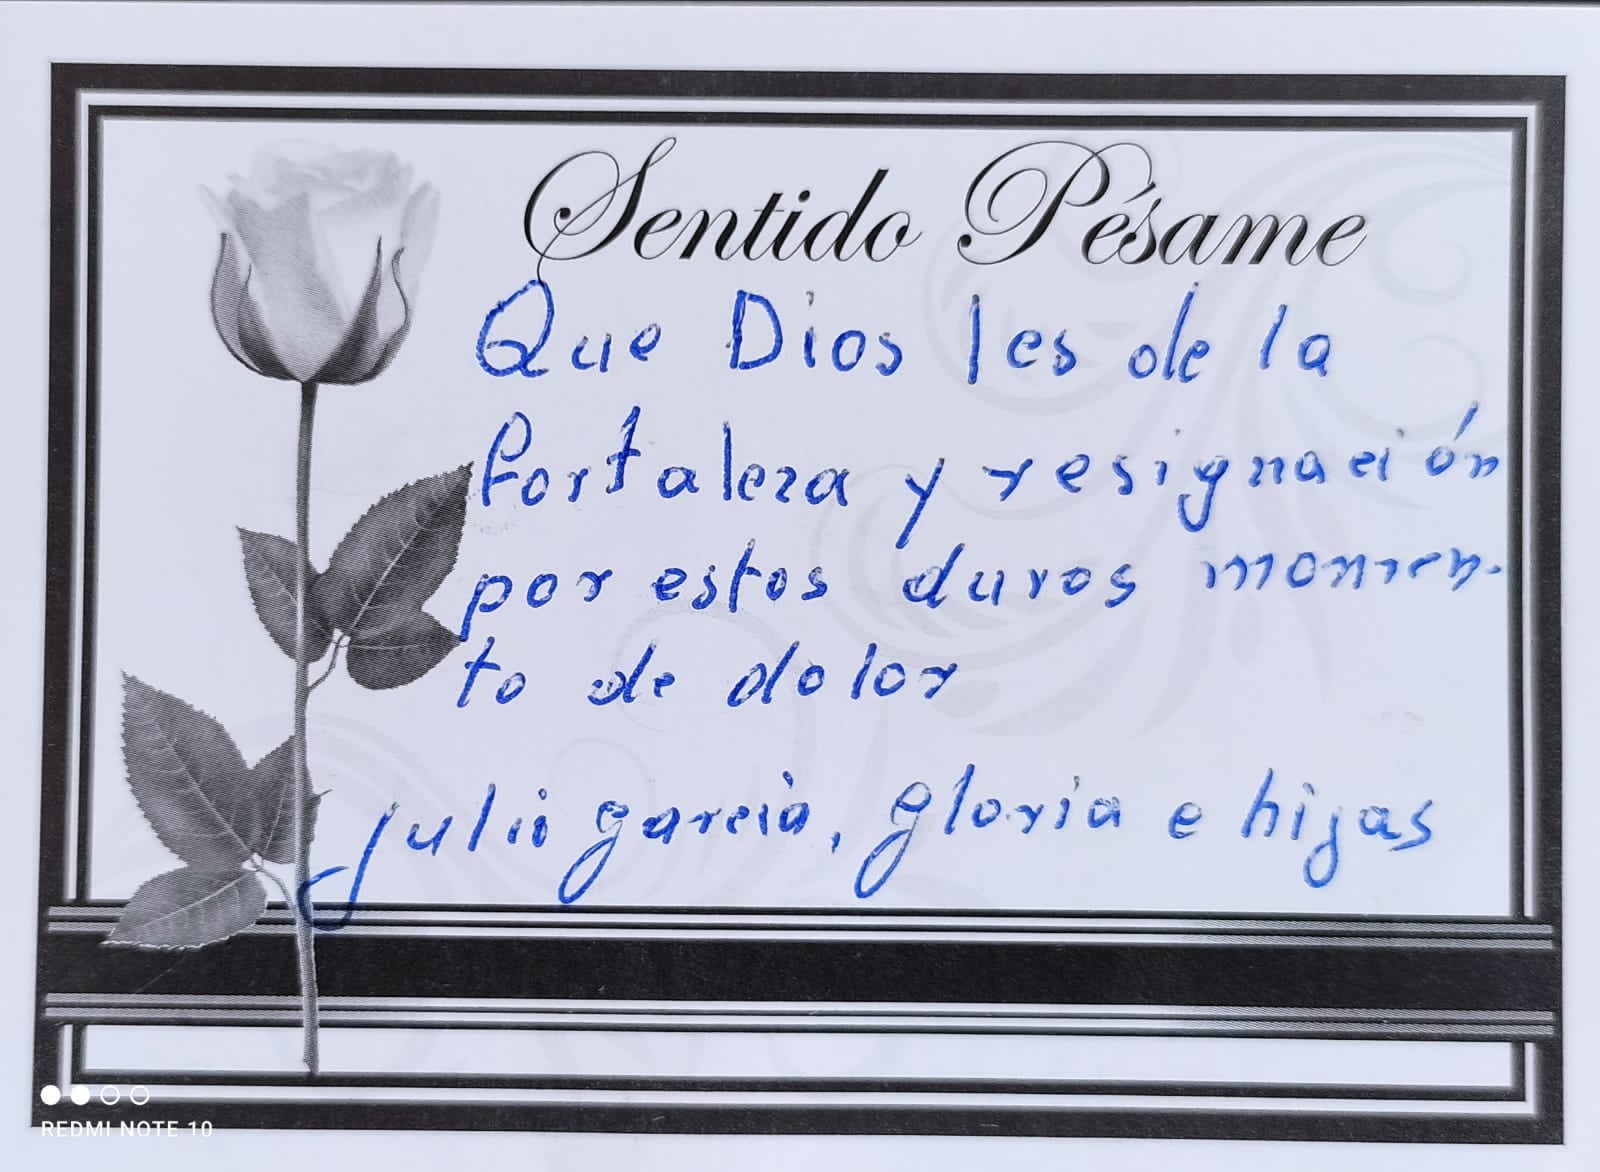 Sentido Pésame
Que Dios les de la
fortaleza y resignación
por estos duros momen-
to de dolor
Julio garcía, gloria e hijas
REDMI NOTE 10